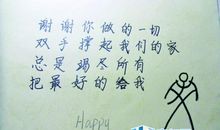 谢谢你做的一切
双手撑起我们的家
总是竭尽所有
把最好的给我
Happy